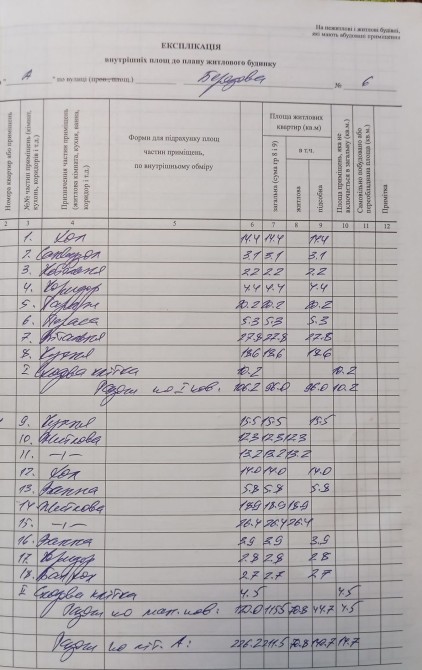 На нежитлові і житлові будівлі,
які мають вбудовані приміщення
ЕКСПЛІКАЦІЯ
внутрішніх площ до плану житлового будинку
" А " по вулиці (пров., площ.) Берегова № 6
Номера квартир або приміщень
№№ частин приміщень (кімнат, кухонь, коридорів і т.д.)
Призначення частин приміщень (житлова кімната, кухня, ванна, коридор і т.д.)
Форми для підрахунку площ
частин приміщень,
по внутрішньому обміру
Площа житлових
квартир (кв.м)
загальна (сума гр 8 і 9)
в т.ч.
житлова
підсобна
Площа приміщень, яка не включається в загальну (кв.м.)
Самовільно побудовано або переобладнана площа (кв.м.)
Примітка
2 3 4 5 6 7 8 9 10 11 12
1. Хол 14.4 14.4 14.4
2. Санвузол 3.1 3.1 3.1
3. Котельня 2.2 2.2 2.2
4. Коридор 4.4 4.4 4.4
5. Гараж 20.2 20.2 20.2
6. Тераса 5.3 5.3 5.3
7. Вітальня 27.8 27.8 27.8
8. Кухня 18.6 18.6 18.6
I Сходова клітка 10.2 10.2
Разом по I пов.: 106.2 96.0 96.0 10.2
9. Кухня 15.5 15.5 15.5
10. Житлова 12.3 12.3 12.3
11. –ı– 13.2 13.2 13.2
12. Хол 14.0 14.0 14.0
13. Ванна 5.8 5.8 5.8
14. Житлова 18.9 18.9 18.9
15. –ı– 26.4 26.4 26.4
16. Ванна 3.9 3.9 3.9
17. Коридор 2.8 2.8 2.8
18. Балкон 2.7 2.7 2.7
II Сходова клітка 4.5 4.5
Разом по ман. пов.: 120.0 115.5 70.8 44.7 4.5
Разом по літ. А: 226.2 211.5 70.8 140.7 14.7